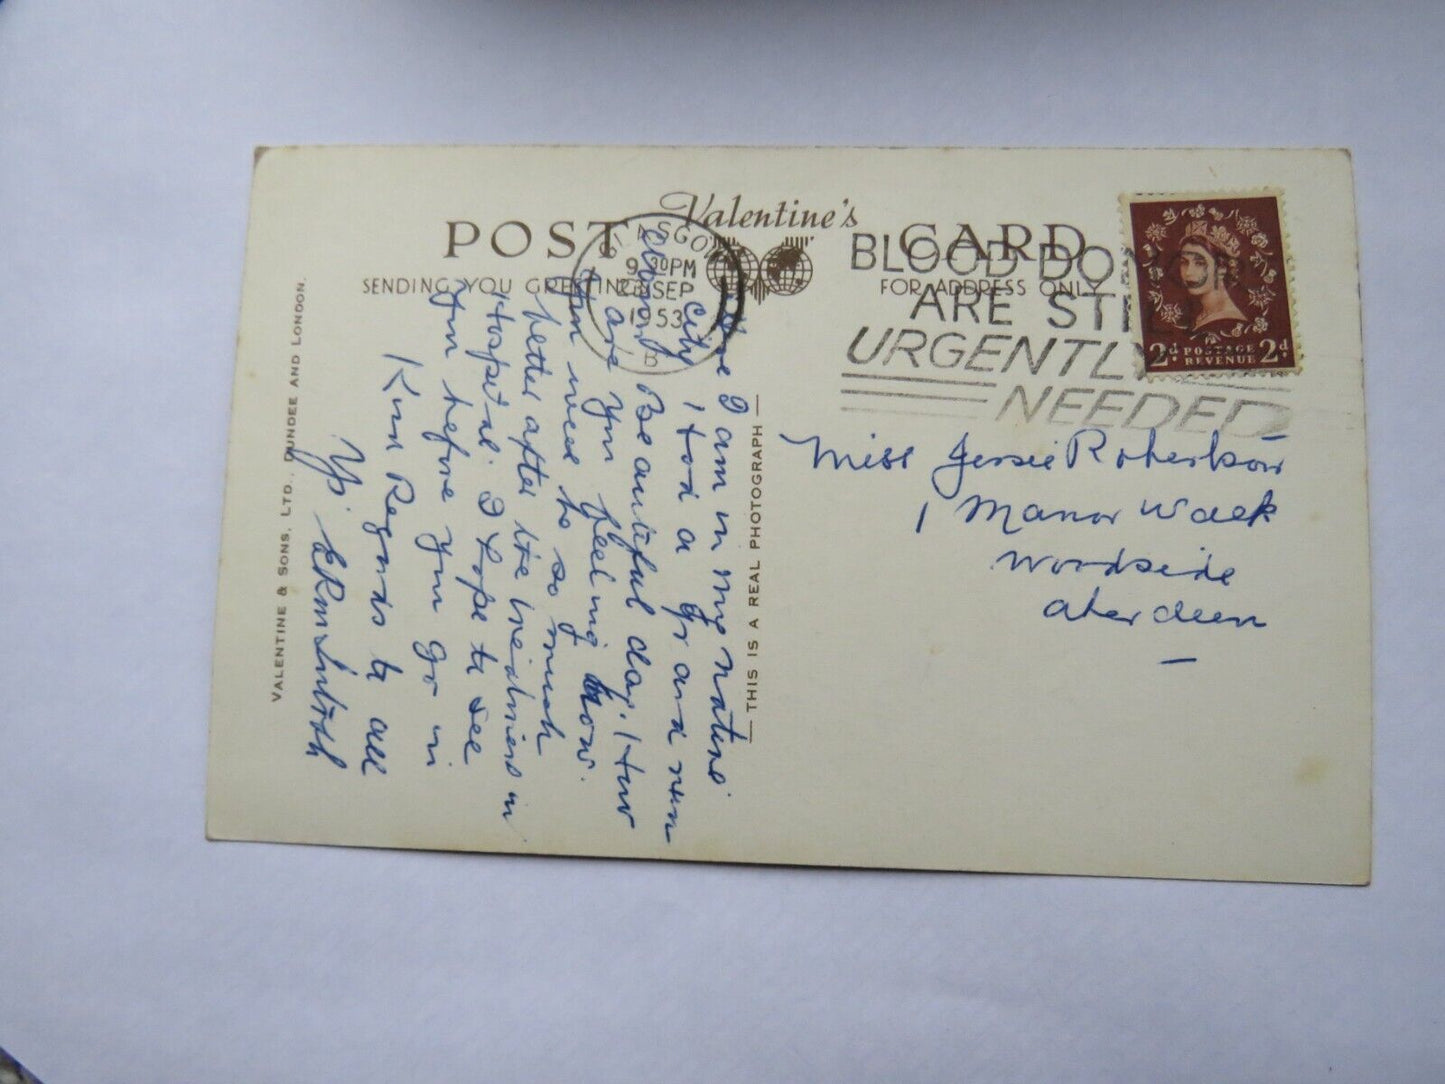 POST Valentine's CARD
SENDING YOU GREETINGS FOR ADDRESS ONLY
GLASGOW
9 30 PM
SEP
1953
B
BLOOD DONORS
ARE STILL
URGENTLY
NEEDED
2d POSTAGE REVENUE 2d
Miss Jessie Robertson
1 Manor Walk
Woodside
Aberdeen
Here I am in my native
City I had a grand run
Beautiful day. How
are you feeling now.
You need to so much
better after the treatment in
Hospital. I hope to see
you before you go in
Kind Regards to all
THIS IS A REAL PHOTOGRAPH
VALENTINE & SONS, LTD., DUNDEE AND LONDON.